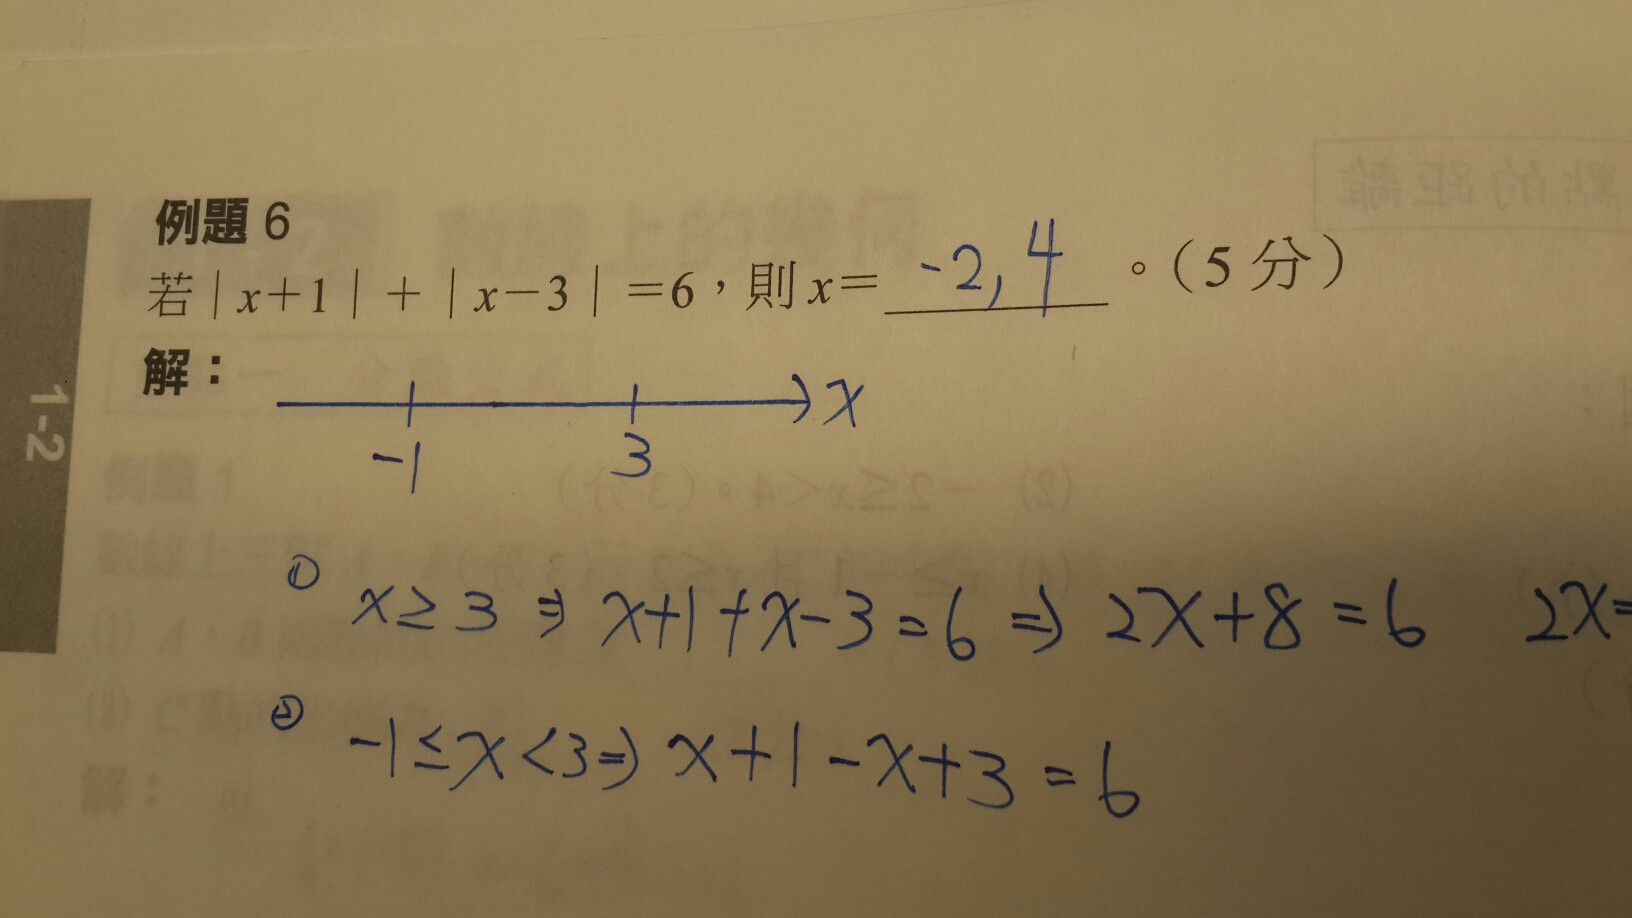 例題 6
若 | x+1 | + | x-3 | =6，則 x= -2, 4 。（5 分）
解：
x
-1 3
1-2
① x ≥ 3 ⇒ x+1+x-3=6 ⇒ 2x+8=6 2x=
② -1 ≤ x < 3 ⇒ x+1-x+3=6